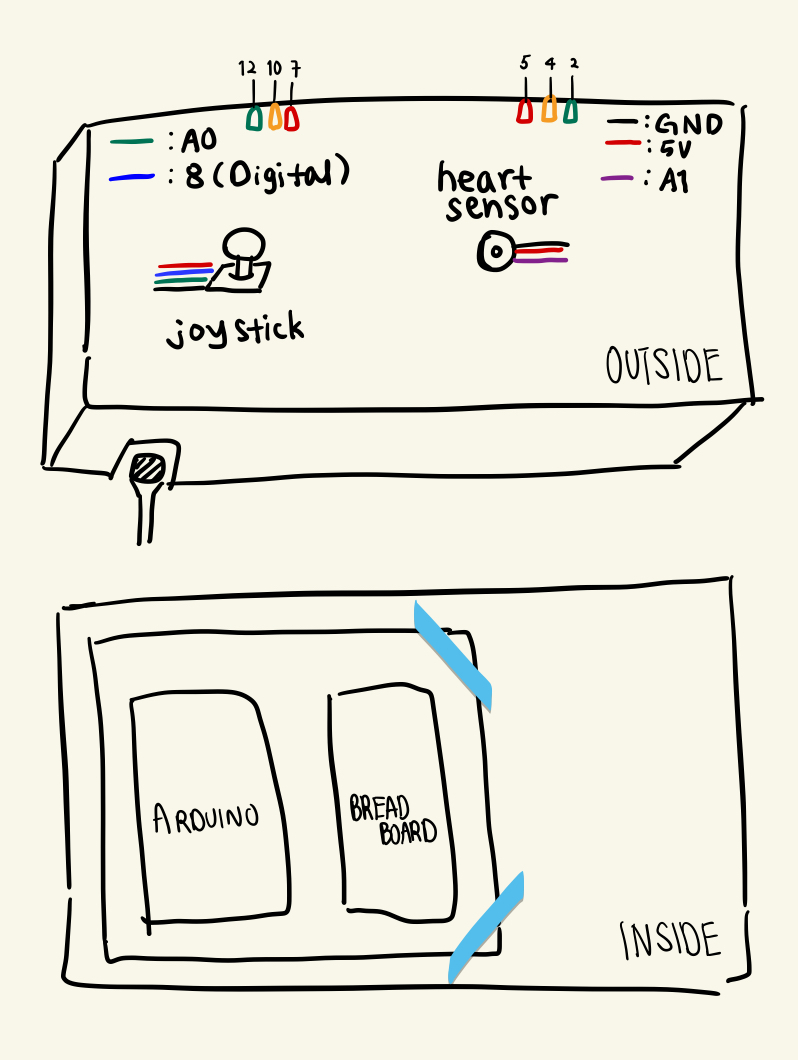 12 10 7
5 4 2
: A0
: 8 (Digital)
heart
sensor
: GND
: 5V
: A1
joystick
OUTSIDE
ARDUINO
BREAD
BOARD
INSIDE